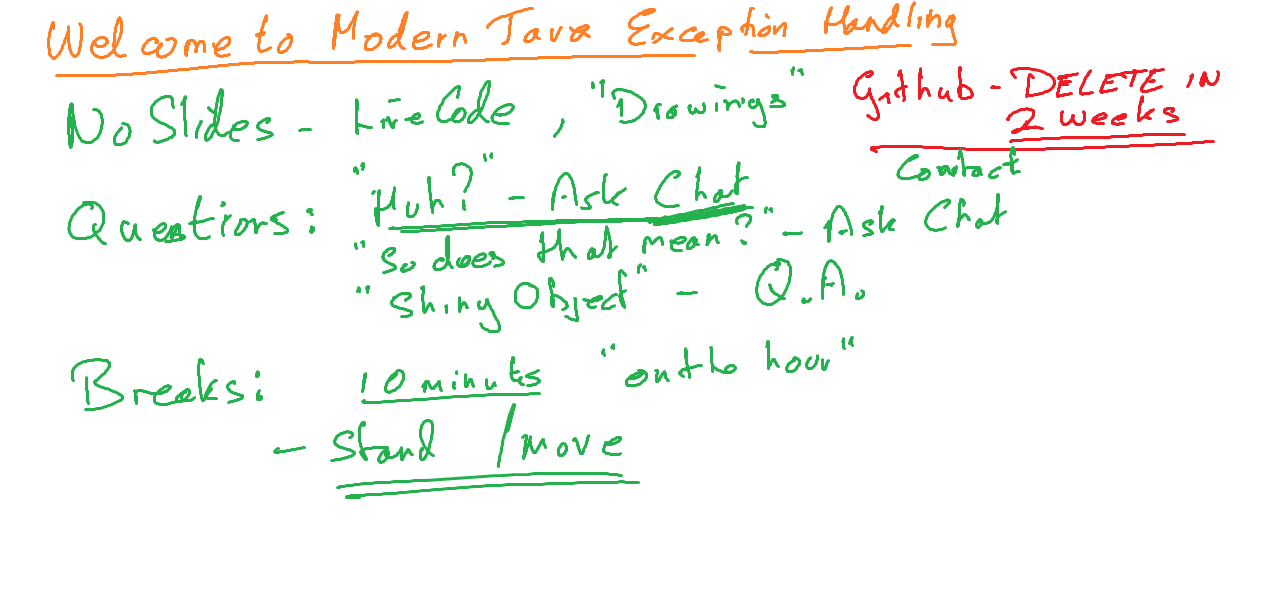 Welcome to Modern Java Exception Handling
No Slides - Live Code, "Drawings"
Github - DELETE IN
2 weeks
Contact
Questions: "Huh?" - Ask Chat
"So does that mean?" - Ask Chat
"Shiny Object" - Q.A.
Breaks: 10 minutes "on the hour"
- Stand / move